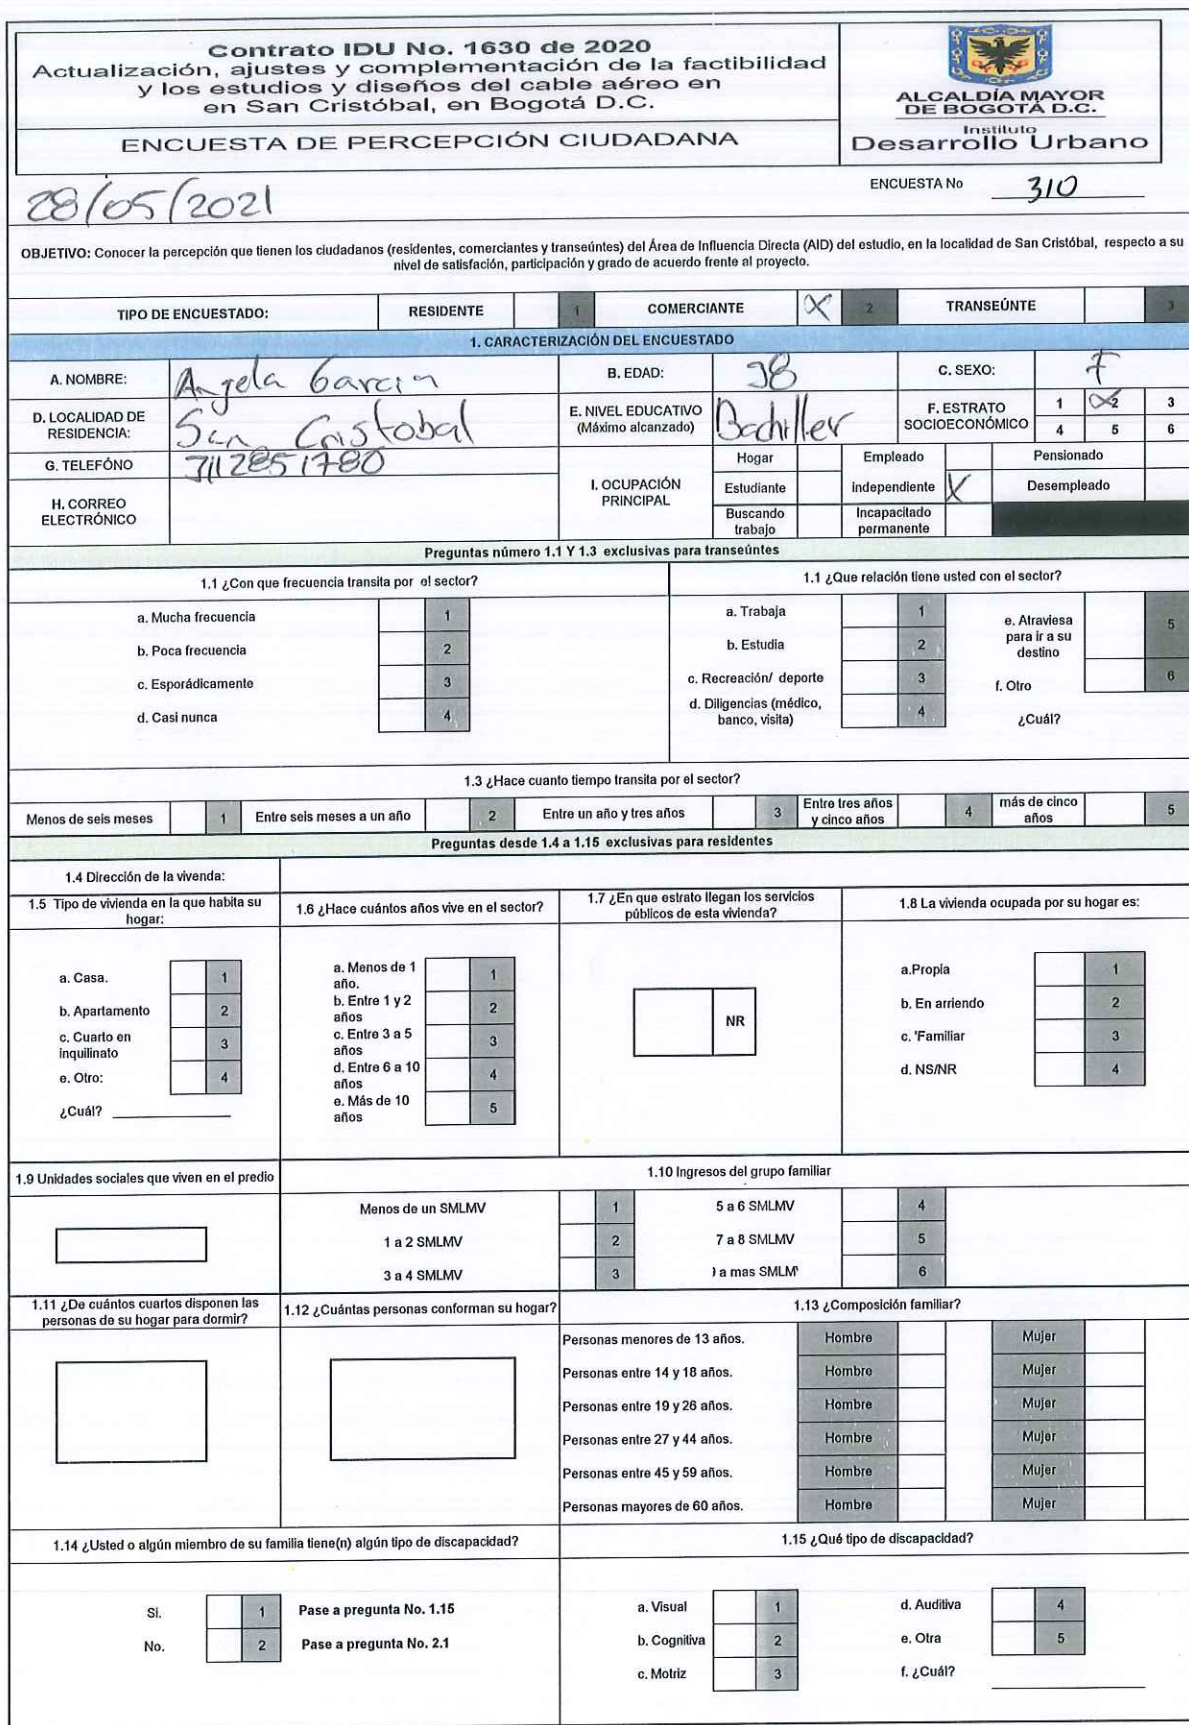 Contrato IDU No. 1630 de 2020
Actualización, ajustes y complementación de la factibilidad
y los estudios y diseños del cable aéreo en
en San Cristóbal, en Bogotá D.C.
ENCUESTA DE PERCEPCIÓN CIUDADANA
ALCALDÍA MAYOR
DE BOGOTÁ D.C.
Instituto
Desarrollo Urbano
28/05/2021
ENCUESTA No 310
OBJETIVO: Conocer la percepción que tienen los ciudadanos (residentes, comerciantes y transeúntes) del Área de Influencia Directa (AID) del estudio, en la localidad de San Cristóbal, respecto a su
nivel de satisfacción, participación y grado de acuerdo frente al proyecto.
TIPO DE ENCUESTADO: RESIDENTE 1 COMERCIANTE X 2 TRANSEÚNTE 3
1. CARACTERIZACIÓN DEL ENCUESTADO
A. NOMBRE: Angela Garcia B. EDAD: 38 C. SEXO: F
D. LOCALIDAD DE
RESIDENCIA: San Cristobal
E. NIVEL EDUCATIVO
(Máximo alcanzado) Bachiller
F. ESTRATO
SOCIOECONÓMICO
1 X2 3
4 5 6
G. TELEFÓNO 3112851780
H. CORREO
ELECTRÓNICO
I. OCUPACIÓN
PRINCIPAL
Hogar Empleado Pensionado
Estudiante independiente X Desempleado
Buscando
trabajo
Incapacitado
permanente
Preguntas número 1.1 Y 1.3 exclusivas para transeúntes
1.1 ¿Con que frecuencia transita por el sector?
a. Mucha frecuencia 1
b. Poca frecuencia 2
c. Esporádicamente 3
d. Casi nunca 4
1.1 ¿Que relación tiene usted con el sector?
a. Trabaja 1
b. Estudia 2
c. Recreación/ deporte 3
d. Diligencias (médico,
banco, visita) 4
e. Atraviesa
para ir a su
destino 5
f. Otro 6
¿Cuál?
1.3 ¿Hace cuanto tiempo transita por el sector?
Menos de seis meses 1 Entre seis meses a un año 2 Entre un año y tres años 3 Entre tres años
y cinco años 4 más de cinco
años 5
Preguntas desde 1.4 a 1.15 exclusivas para residentes
1.4 Dirección de la vivenda:
1.5 Tipo de vivienda en la que habita su
hogar:
a. Casa. 1
b. Apartamento 2
c. Cuarto en
inquilinato 3
e. Otro: 4
¿Cuál?
1.6 ¿Hace cuántos años vive en el sector?
a. Menos de 1
año. 1
b. Entre 1 y 2
años 2
c. Entre 3 a 5
años 3
d. Entre 6 a 10
años 4
e. Más de 10
años 5
1.7 ¿En que estrato llegan los servicios
públicos de esta vivienda?
NR
1.8 La vivienda ocupada por su hogar es:
a.Propia 1
b. En arriendo 2
c. 'Familiar 3
d. NS/NR 4
1.9 Unidades sociales que viven en el predio
1.10 Ingresos del grupo familiar
Menos de un SMLMV 1 5 a 6 SMLMV 4
1 a 2 SMLMV 2 7 a 8 SMLMV 5
3 a 4 SMLMV 3 a mas SMLM 6
1.11 ¿De cuántos cuartos disponen las
personas de su hogar para dormir?
1.12 ¿Cuántas personas conforman su hogar?
1.13 ¿Composición familiar?
Personas menores de 13 años. Hombre Mujer
Personas entre 14 y 18 años. Hombre Mujer
Personas entre 19 y 26 años. Hombre Mujer
Personas entre 27 y 44 años. Hombre Mujer
Personas entre 45 y 59 años. Hombre Mujer
Personas mayores de 60 años. Hombre Mujer
1.14 ¿Usted o algún miembro de su familia tiene(n) algún tipo de discapacidad?
Si. 1 Pase a pregunta No. 1.15
No. 2 Pase a pregunta No. 2.1
1.15 ¿Qué tipo de discapacidad?
a. Visual 1 d. Auditiva 4
b. Cognitiva 2 e. Otra 5
c. Motriz 3 f. ¿Cuál?